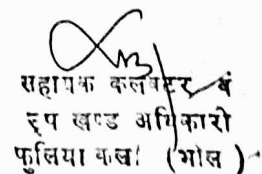 सहायक कलक्टर एवं
उप खण्ड अधिकारी
फुलिया कलां (भील)